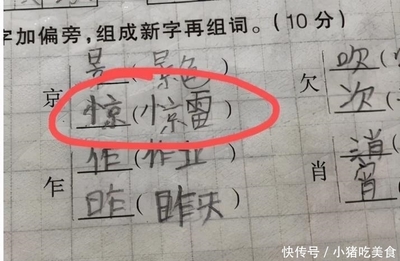 字加偏旁,组成新字再组词。(10分)
京 景(景色)
惊(惊雷)
乍 作(作业)
昨(昨天)
欠 吹(
次(
肖 消(
宵(
快传号/小猪吃美食